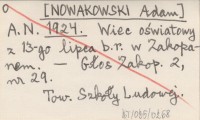 [NOWAKOWSKI Adam]
A.N. 1924. Wiec oświatowy
z 13-go lipca b.r. w Zakopa-
nem. — Głos Zakop. 2,
nr 29.
Tow. Szkoły Ludowej.